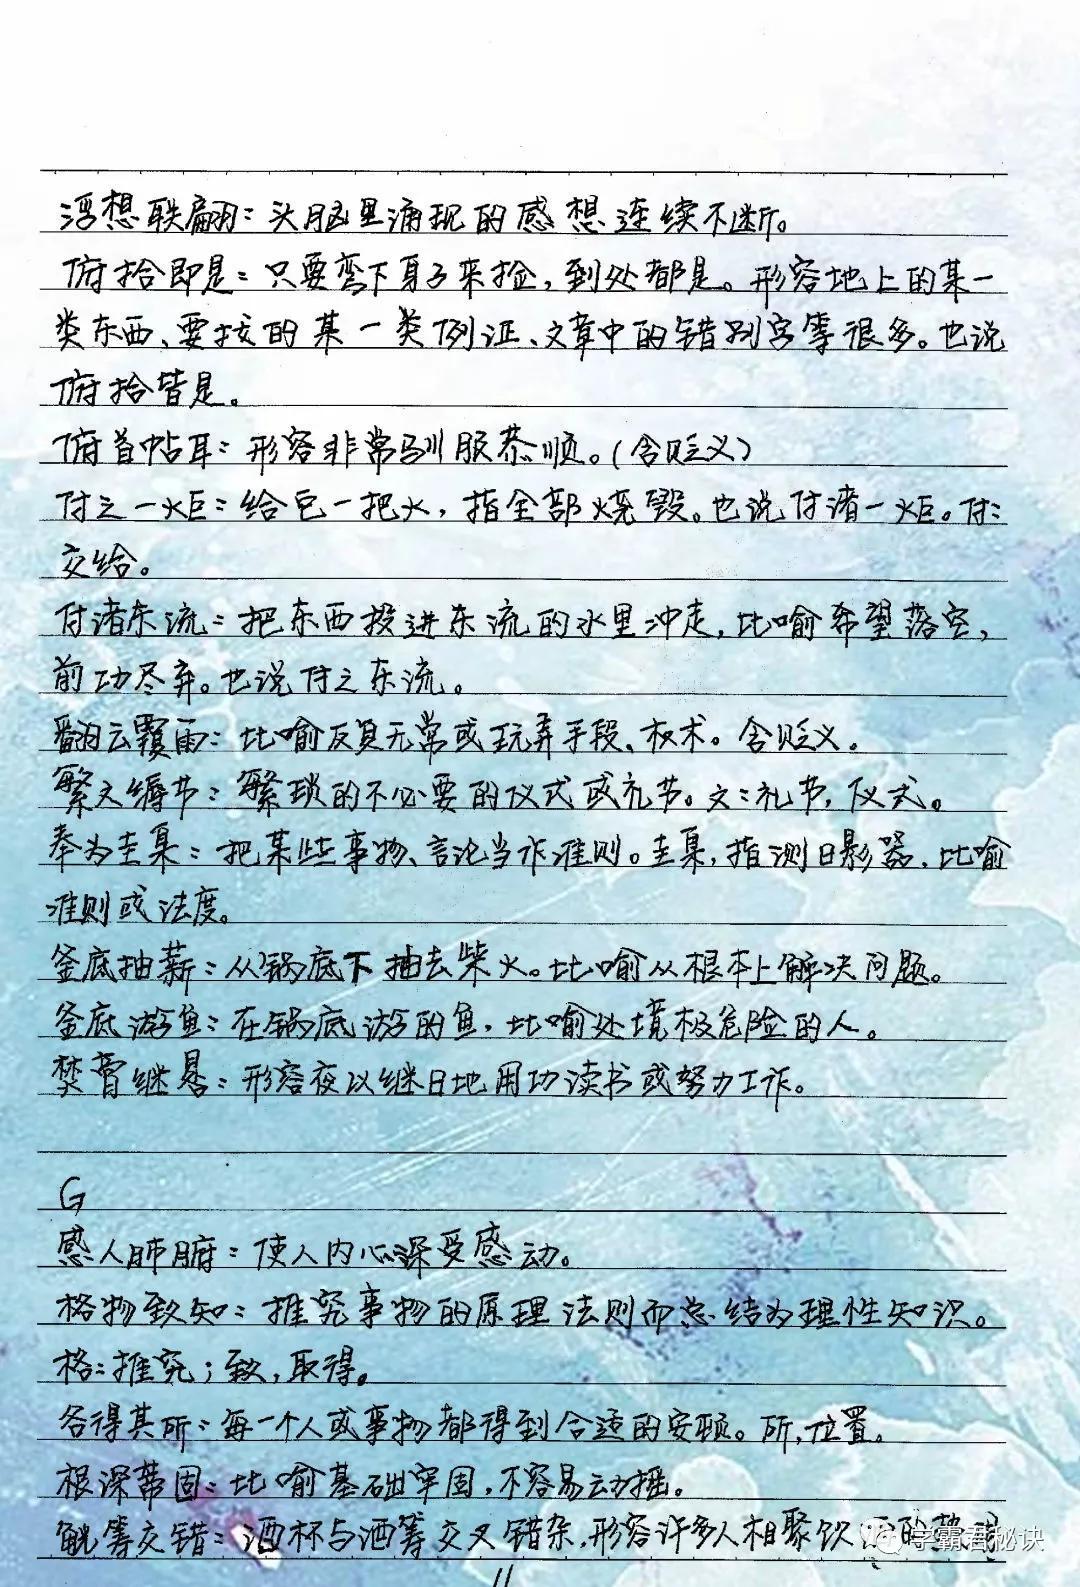 浮想联翩：头脑里涌现的感想连续不断。
俯拾即是：只要弯下身子来捡，到处都是。形容地上的某一
类东西、要找的某一类例证、文章中的错别字等很多。也说
俯拾皆是。
俯首帖耳：形容非常驯服恭顺。（含贬义）
付之一炬：给它一把火，指全部烧毁。也说付诸一炬。付：
交给。
付诸东流：把东西投进东流的水里冲走，比喻希望落空，
前功尽弃。也说付之东流。
翻云覆雨：比喻反复无常或玩弄手段、权术。含贬义。
繁文缛节：繁琐的不必要的仪式或礼节。文：礼节，仪式。
奉为圭臬：把某些事物、言论当作准则。圭臬，指测日影器，比喻
准则或法度。
釜底抽薪：从锅底下抽去柴火。比喻从根本上解决问题。
釜底游鱼：在锅底游的鱼，比喻处境极危险的人。
焚膏继晷：形容夜以继日地用功读书或努力工作。
G
感人肺腑：使人内心深受感动。
格物致知：推究事物的原理法则而总结为理性知识。
格：推究；致，取得。
各得其所：每一个人或事物都得到合适的安顿。所，位置。
根深蒂固：比喻基础牢固，不容易动摇。
觥筹交错：酒杯与酒筹交叉错杂，形容许多人相聚饮 的热
学霸君秘诀
11